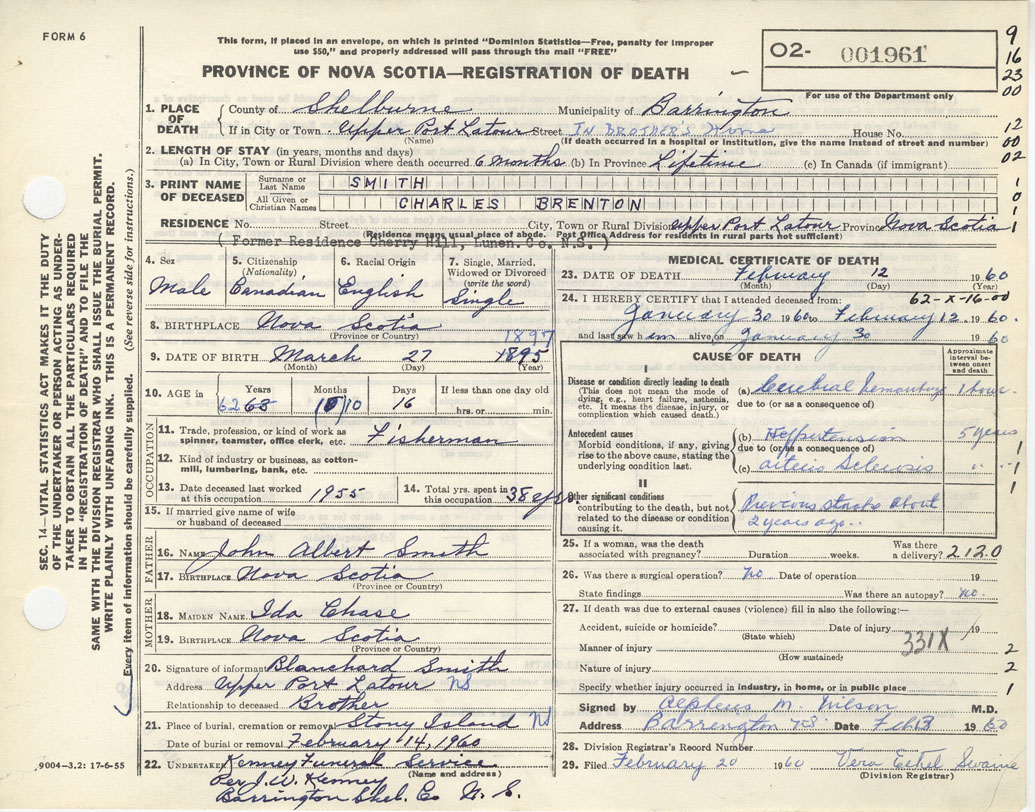 FORM 6
This form, if placed in an envelope, on which is printed "Dominion Statistics—Free, penalty for improper
use $50," and properly addressed will pass through the mail "FREE"
PROVINCE OF NOVA SCOTIA—REGISTRATION OF DEATH
O2- 001961
For use of the Department only
9
16
23
00
12
00
02
1
0
1
1
1. PLACE OF DEATH
County of Shelburne Municipality of Barrington
If in City or Town - Upper Port Latour Street IN BROTHER'S Home House No.
(Name) (If death occurred in a hospital or institution, give the name instead of street and number)
2. LENGTH OF STAY (in years, months and days)
(a) In City, Town or Rural Division where death occurred 6 months (b) In Province Lifetime (c) In Canada (if immigrant)
3. PRINT NAME OF DECEASED
Surname or Last Name SMITH
All Given or Christian Names CHARLES BRENTON
RESIDENCE No. Street City, Town or Rural Division Upper Port Latour Province Nova Scotia
(Residence means usual place of abode. Post Office Address for residents in rural parts not sufficient)
( Former Residence Cherry Hill, Lunen. Co. N.S. )
4. Sex
Male
5. Citizenship (Nationality)
Canadian
6. Racial Origin
English
7. Single, Married, Widowed or Divorced (write the word)
Single
8. BIRTHPLACE Nova Scotia
(Province or Country)
1897
9. DATE OF BIRTH March 27 1895
(Month) (Day) (Year)
10. AGE in Years Months Days If less than one day old
62 63 10 10 16 hrs. or min.
OCCUPATION
11. Trade, profession, or kind of work as spinner, teamster, office clerk, etc. Fisherman
12. Kind of industry or business, as cotton-mill, lumbering, bank, etc.
13. Date deceased last worked at this occupation 1955
14. Total yrs. spent in this occupation 38 yrs.
15. If married give name of wife or husband of deceased
FATHER
16. NAME John Albert Smith
17. BIRTHPLACE Nova Scotia
(Province or Country)
MOTHER
18. MAIDEN NAME Ida Chase
19. BIRTHPLACE Nova Scotia
(Province or Country)
20. Signature of informant Blanchard Smith
Address Upper Port Latour NS
Relationship to deceased Brother
21. Place of burial, cremation or removal Stony Island NS
Date of burial or removal February 14, 1960
22. UNDERTAKER Kenney Funeral Service
(Name and address)
Per J. W. Kenney
Barrington Shel. Co N. S.
9004-3.2: 17-6-55
MEDICAL CERTIFICATE OF DEATH
23. DATE OF DEATH February 12 1960
(Month) (Day) (Year)
24. I HEREBY CERTIFY that I attended deceased from: 62-X-16-00
January 30 1960 to February 12 1960
and last saw him alive on January 30 1960
CAUSE OF DEATH
Approximate interval between onset and death
I
Disease or condition directly leading to death
(This does not mean the mode of dying, e.g., heart failure, asthenia, etc. It means the disease, injury, or complication which caused death.)
(a) Cerebral Hemorrhage 1 hour
due to (or as a consequence of)
Antecedent causes
Morbid conditions, if any, giving rise to the above cause, stating the underlying condition last.
(b) Hypertension 5 years
due to (or as a consequence of)
(c) arterio Sclerosis " "
II
Other significant conditions
contributing to the death, but not related to the disease or condition causing it.
Previous stroke about
2 years ago
1
1
1
25. If a woman, was the death associated with pregnancy? Duration weeks. Was there a delivery? 2120
26. Was there a surgical operation? no Date of operation 19
State findings Was there an autopsy? no.
27. If death was due to external causes (violence) fill in also the following:—
Accident, suicide or homicide? Date of injury 19
(State which)
331X
Manner of injury 2
(How sustained)
Nature of injury 2
Specify whether injury occurred in industry, in home, or in public place 1
Signed by Alpheus M. Wilson M.D.
Address Barrington NS. Date Feb 13 1960
28. Division Registrar's Record Number
29. Filed February 20 1960 Vera Ethel Swaine
(Division Registrar)
SEC. 14—VITAL STATISTICS ACT MAKES IT THE DUTY
OF THE UNDERTAKER OR PERSON ACTING AS UNDER-
TAKER TO OBTAIN ALL THE PARTICULARS REQUIRED
IN THE "REGISTRATION OF DEATH" AND TO FILE THE
SAME WITH THE DIVISION REGISTRAR WHO SHALL ISSUE THE BURIAL PERMIT.
WRITE PLAINLY WITH UNFADING INK. THIS IS A PERMANENT RECORD.
Every item of information should be carefully supplied. (See reverse side for instructions.)